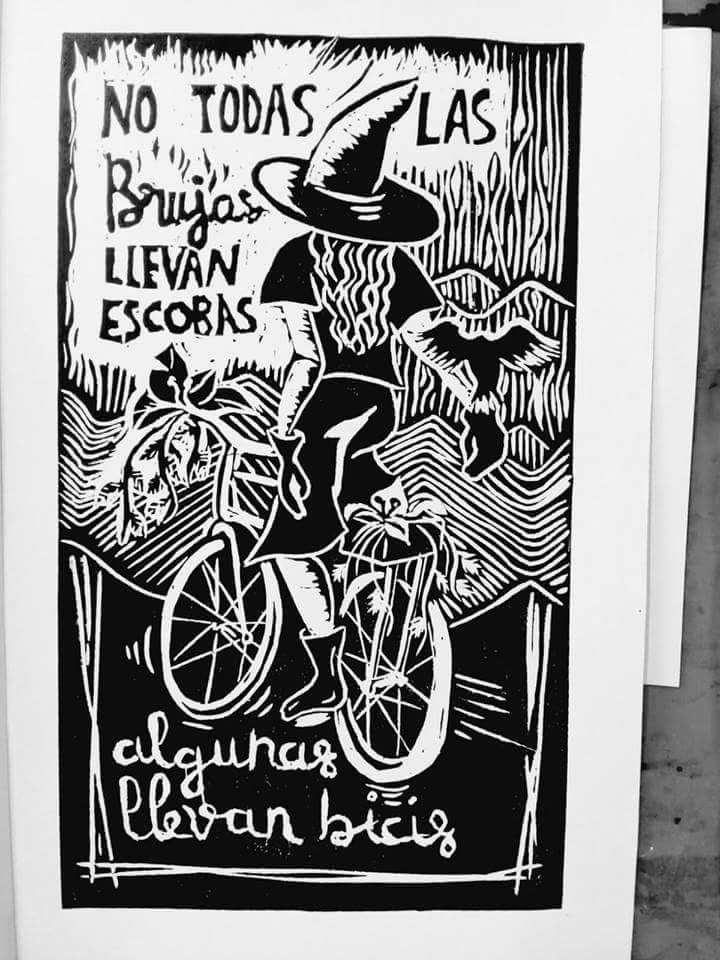 NO TODAS LAS
Brujas
LLEVAN
ESCOBAS
algunas
llevan bicis